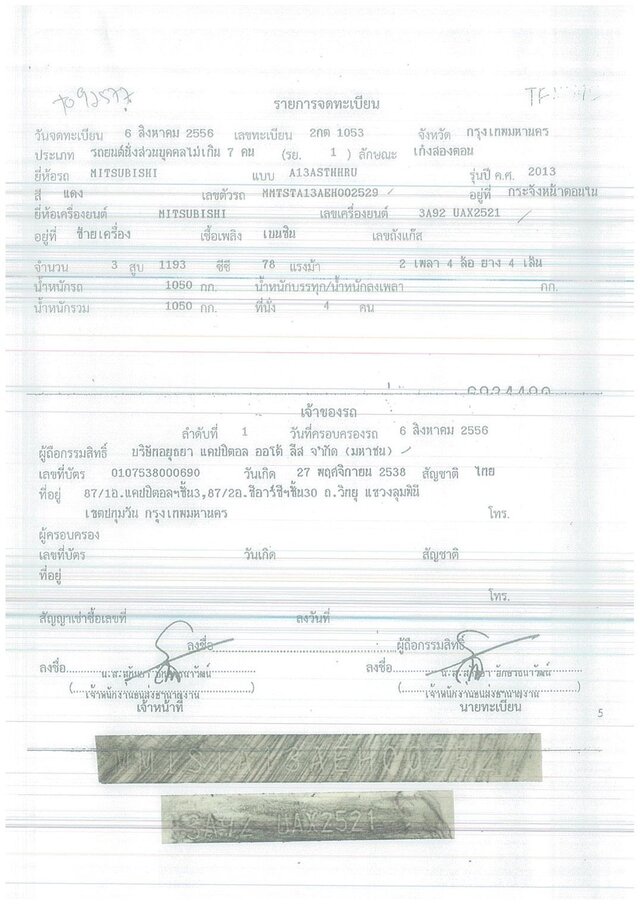 รายการจดทะเบียน
วันจดทะเบียน 6 สิงหาคม 2556 เลขทะเบียน 2กต 1053 จังหวัด กรุงเทพมหานคร
ประเภท รถยนต์นั่งส่วนบุคคลไม่เกิน 7 คน (รย. 1 ) ลักษณะ เก๋งสองตอน
ยี่ห้อรถ MITSUBISHI แบบ A13ASTHHRU รุ่นปี ค.ศ. 2013
สี แดง เลขตัวรถ MMTSTA13AEH002529 อยู่ที่ กระจังหน้าตอนใน
ยี่ห้อเครื่องยนต์ MITSUBISHI เลขเครื่องยนต์ 3A92 UAX2521
อยู่ที่ ซ้ายเครื่อง เชื้อเพลิง เบนซิน เลขถังแก๊ส
จำนวน 3 สูบ 1193 ซีซี 78 แรงม้า 2 เพลา 4 ล้อ ยาง 4 เส้น
น้ำหนักรถ 1050 กก. น้ำหนักบรรทุก/น้ำหนักลงเพลา กก.
น้ำหนักรวม 1050 กก. ที่นั่ง 4 คน
เจ้าของรถ
ลำดับที่ 1 วันที่ครอบครองรถ 6 สิงหาคม 2556
ผู้ถือกรรมสิทธิ์ บริษัทอยุธยา แคปปิตอล ออโต้ ลีส จำกัด (มหาชน)
เลขที่บัตร 0107538000690 วันเกิด 27 พฤศจิกายน 2538 สัญชาติ ไทย
ที่อยู่ 87/1อ.แคปปิตอลฯชั้น3,87/2อ.ซีอาร์ซีฯชั้น30 ถ.วิทยุ แขวงลุมพินี
เขตปทุมวัน กรุงเทพมหานคร โทร.
ผู้ครอบครอง
เลขที่บัตร วันเกิด สัญชาติ
ที่อยู่
โทร.
สัญญาเช่าซื้อเลขที่ ลงวันที่
ลงชื่อ ผู้ถือกรรมสิทธิ์
ลงชื่อ ลงชื่อ
เจ้าหน้าที่ นายทะเบียน
5
3A92 UAX2521